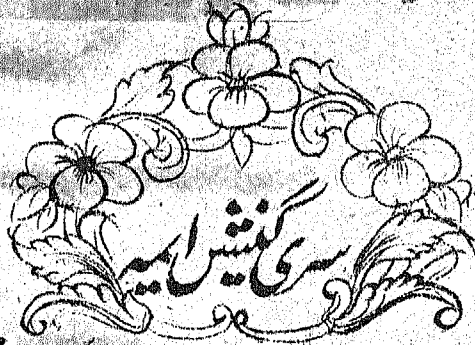 سری گنیش ایمیہ